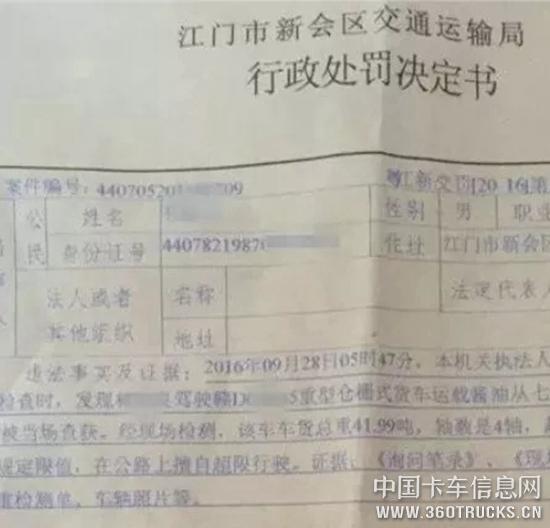 江门市新会区交通运输局
行政处罚决定书
案件编号:44070520 709
粤江新交罚[2016]第
公民
姓名
性别
男
职业
身份证号
4407821987
住址
江门市新会区
法人或者
其他组织
名称
法定代表人
地址
违法事实及证据: 2016年09月28日05时47分,本机关执法人
检查时,发现 驾驶赣D 5重型仓栅式货车运载酱油从七
被当场查获。经现场检测,该车车货总重41.99吨,轴数是4轴,
规定限值,在公路上擅自超限行驶。证据:《询问笔录》、《现
重检测单,车辆照片等。
中国卡车信息网
www.360TRUCKS.CN